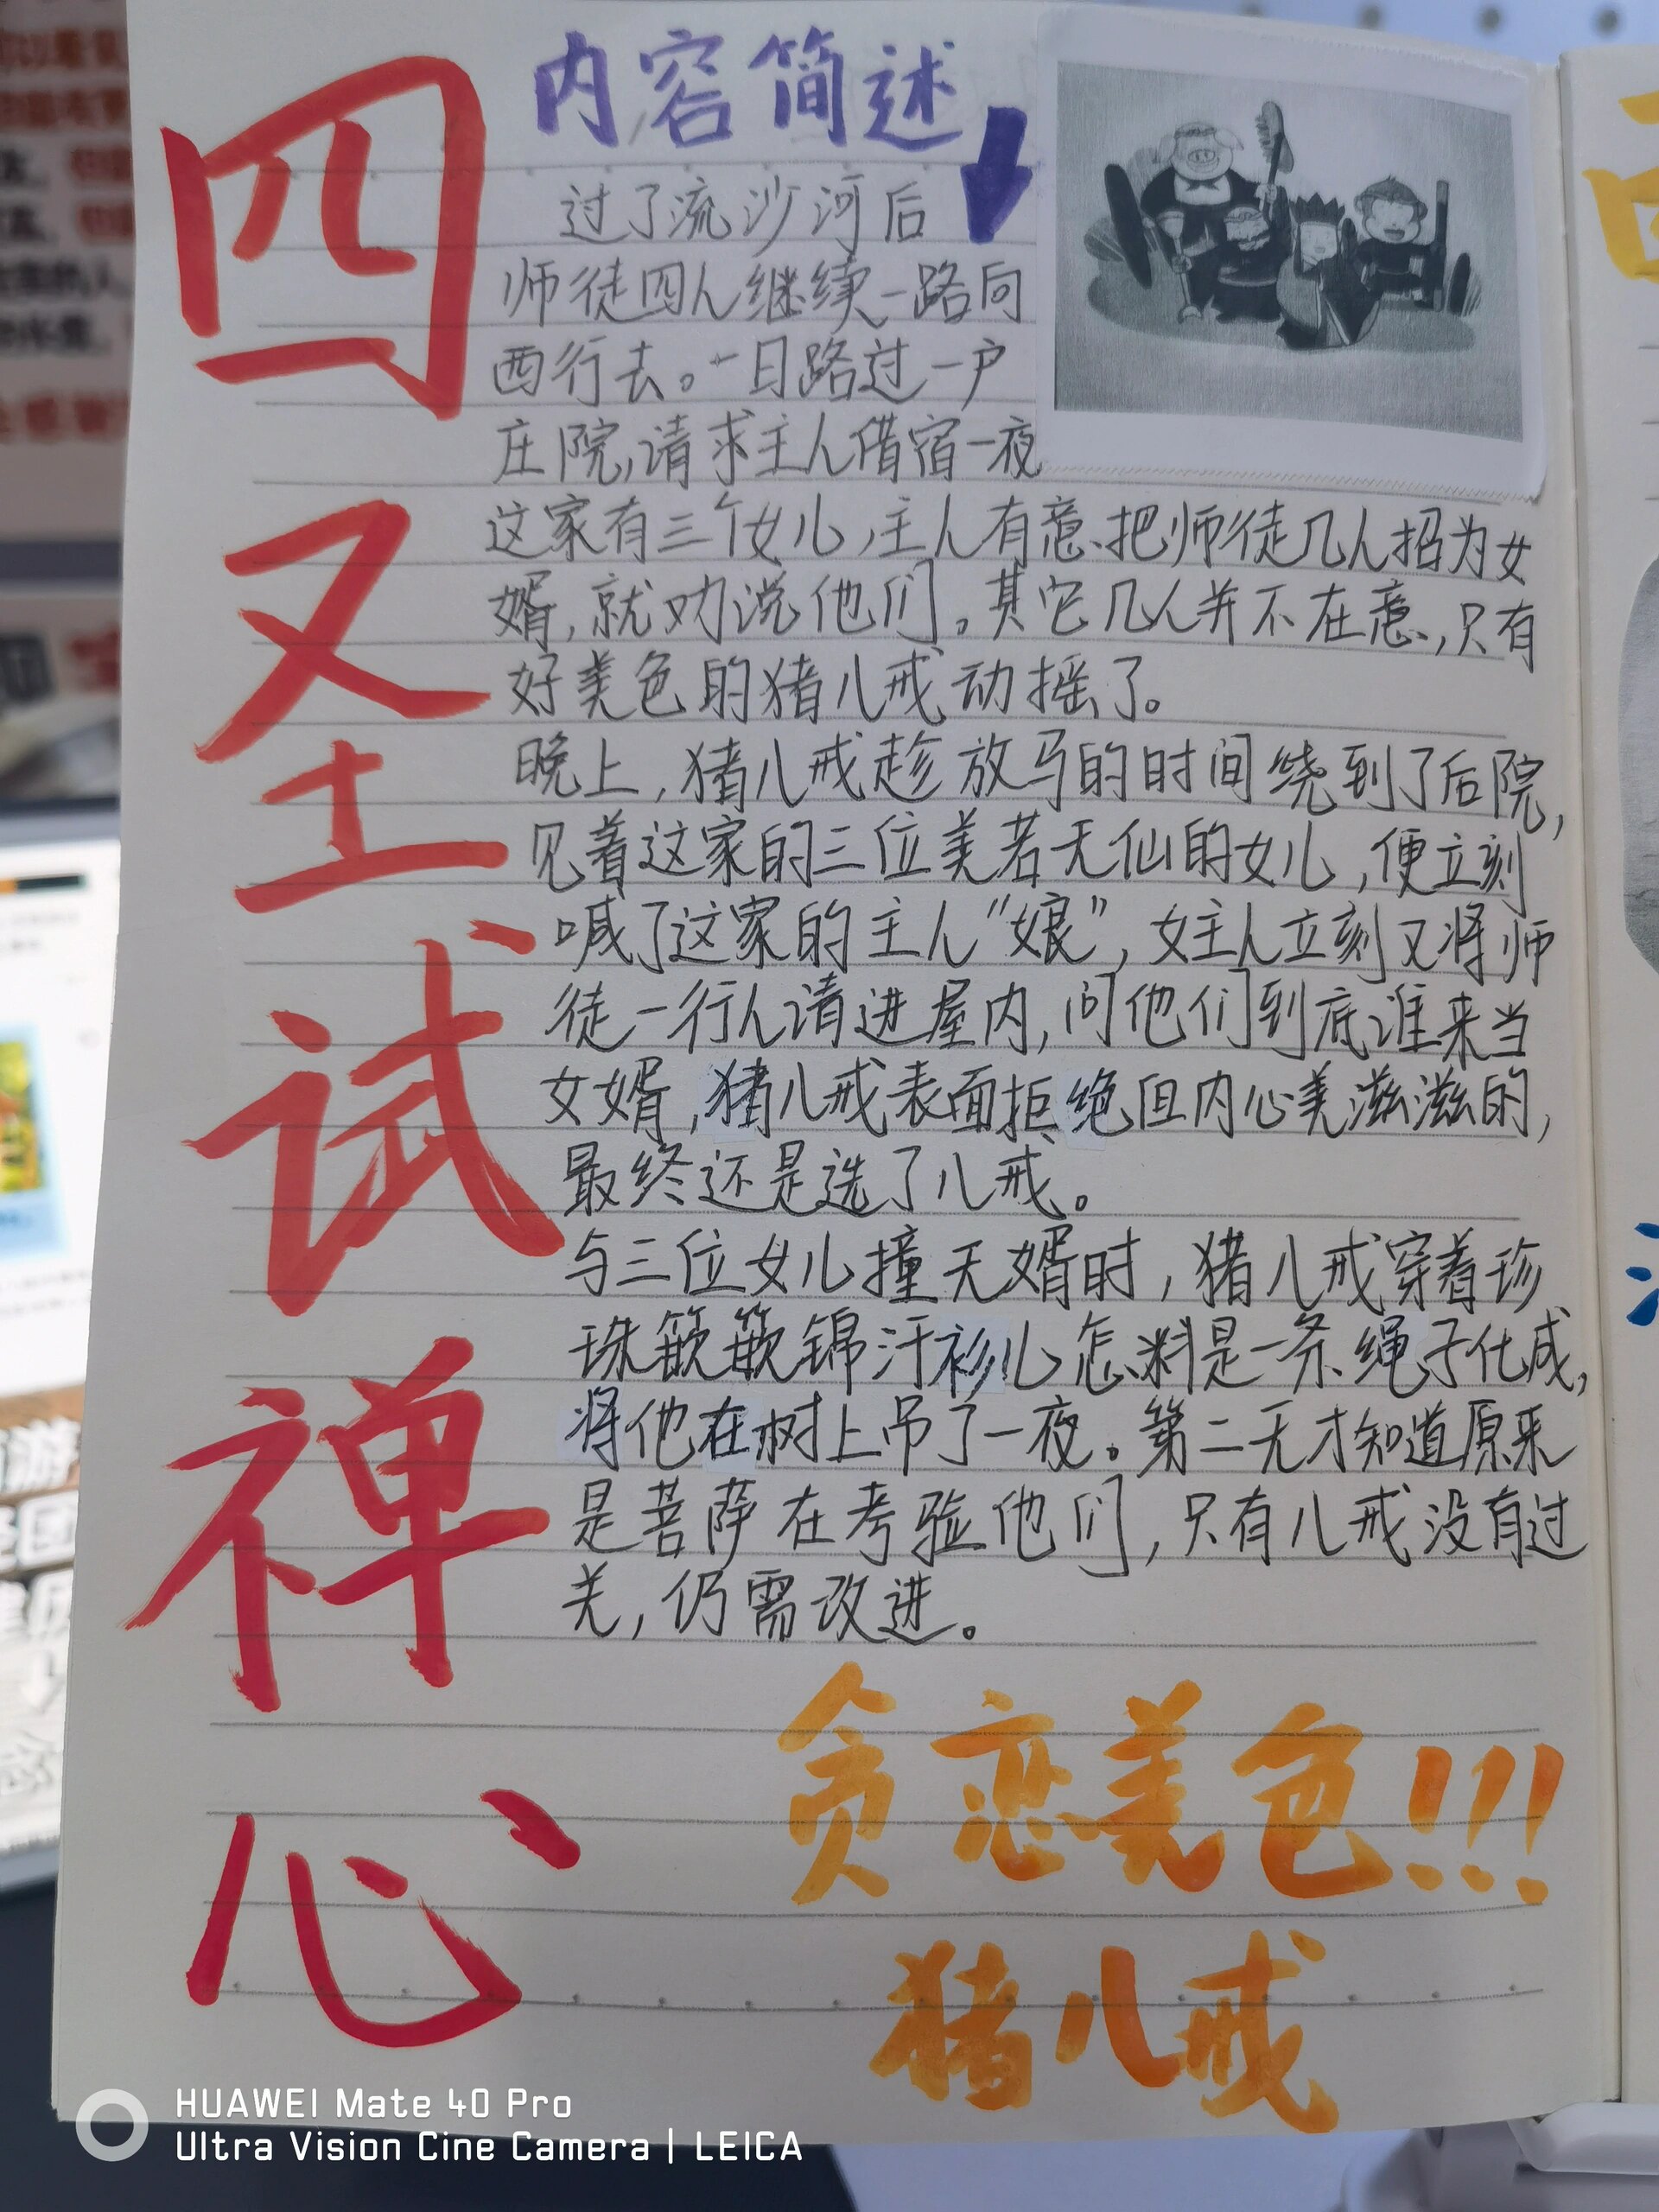 四圣试禅心
内容简述
过了流沙河后
师徒四人继续一路向
西行去。一日路过一户
庄院,请求主人借宿一夜
这家有三个女儿,主人有意把师徒几人招为女
婿,就劝说他们。其它几人并不在意,只有
好美色的猪八戒动摇了。
晚上,猪八戒趁放马的时间绕到了后院,
见着这家的三位美若天仙的女儿,便立刻
喊了这家的主人“娘”,女主人立刻又将师
徒一行人请进屋内,问他们到底谁来当
女婿,猪八戒表面拒绝但内心美滋滋的,
最终还是选了八戒。
与三位女儿撞天婿时,猪八戒穿着珍
珠篏篏锦汗衫儿怎料是一条绳子化成,
将他在树上吊了一夜。第二天才知道原来
是菩萨在考验他们,只有八戒没有过
关,仍需改进。
贪恋美色!!!
猪八戒
HUAWEI Mate 40 Pro
Ultra Vision Cine Camera | LEICA